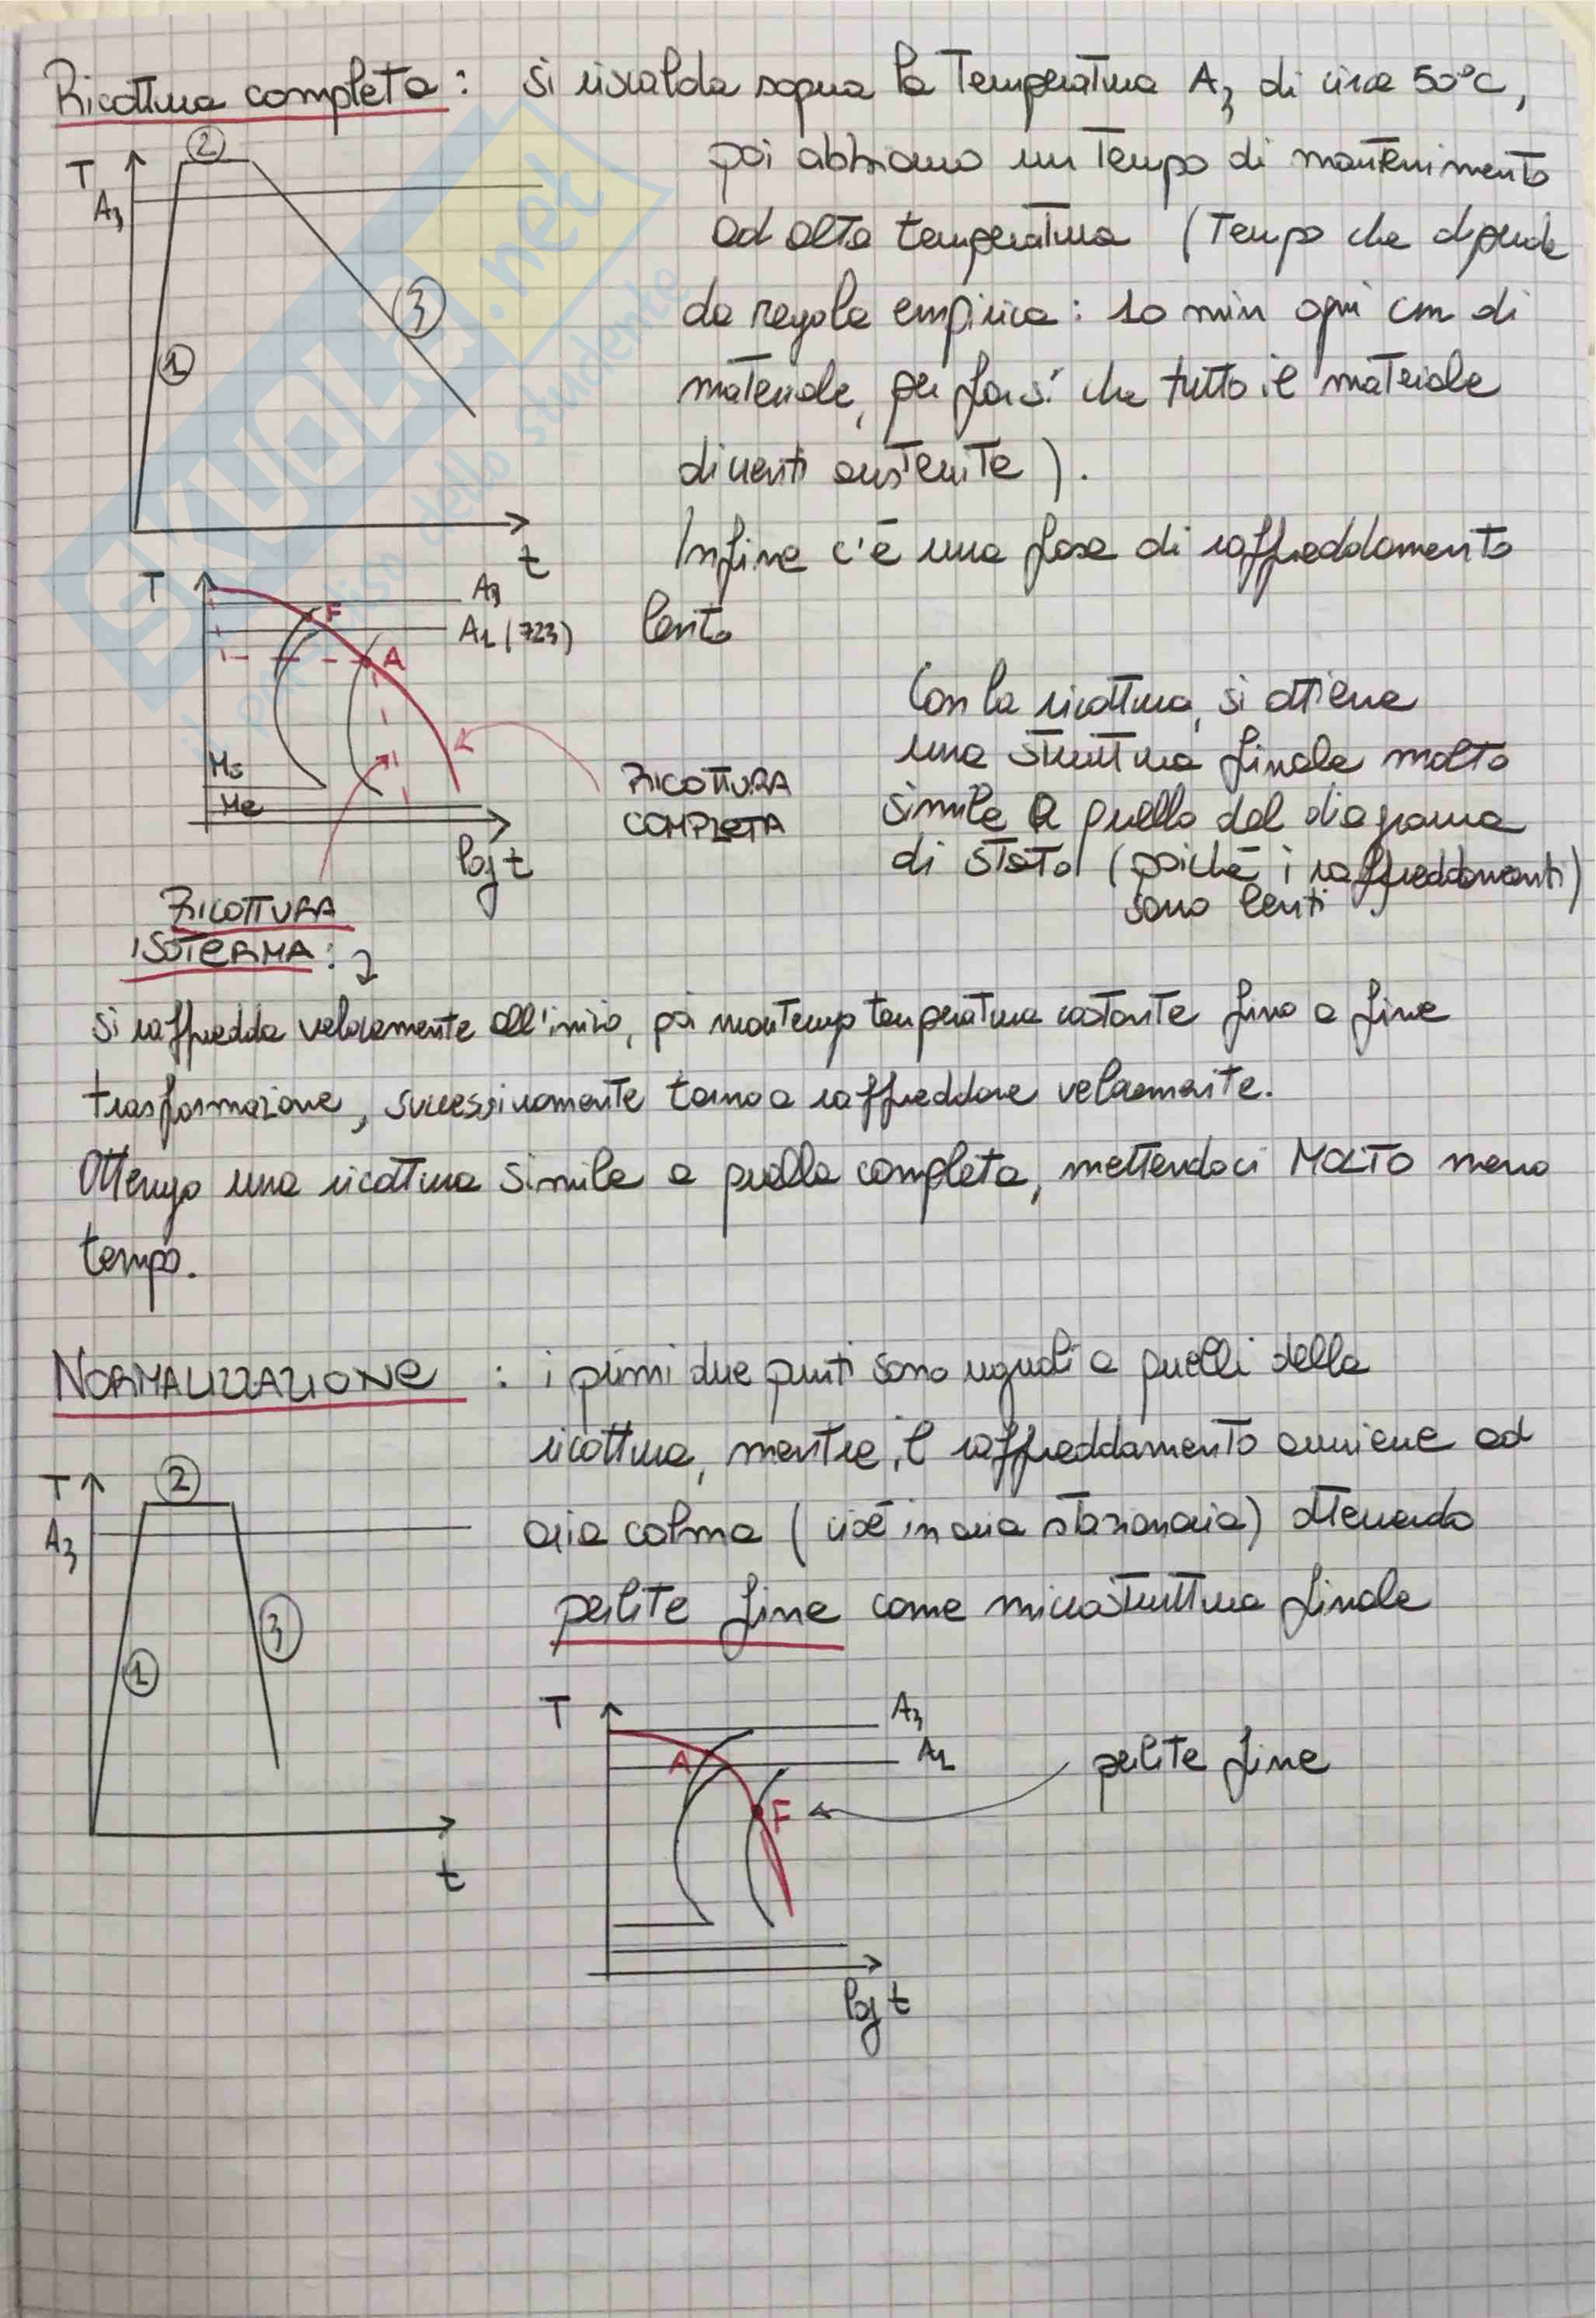 Ricottura completa : si riscalda sopra la temperatura A3 di circa 50°C,
poi abbiamo un tempo di mantenimento
ad alta temperatura (tempo che dipende
da regola empirica : 10 min ogni cm di
materiale, per far sì che tutto il materiale
diventi austenite).
Infine c'è una fase di raffreddamento
lento
T
A3
1
2
3
t
T
A3
A1 (723)
F
A
Ms
Me
log t
RICOTTURA
COMPLETA
Con la ricottura, si ottiene
una struttura finale molto
simile a quello del diagramma
di stato (poiché i raffreddamenti)
sono lenti
RICOTTURA
ISOTERMA :
si raffredda velocemente all'inizio, poi mantengo temperatura costante fino a fine
trasformazione, successivamente torno a raffreddare velocemente.
Ottengo una ricottura simile a quella completa, mettendoci MOLTO meno
tempo.
NORMALIZZAZIONE : i primi due punti sono uguali a quelli della
ricottura, mentre il raffreddamento avviene ad
aria calma (cioè in aria stazionaria) ottenendo
perlite fine come microstruttura finale
T
A3
1
2
3
t
T
A3
A1
A
F
perlite fine
log t
SKUOLA.net
il paradiso dello studente